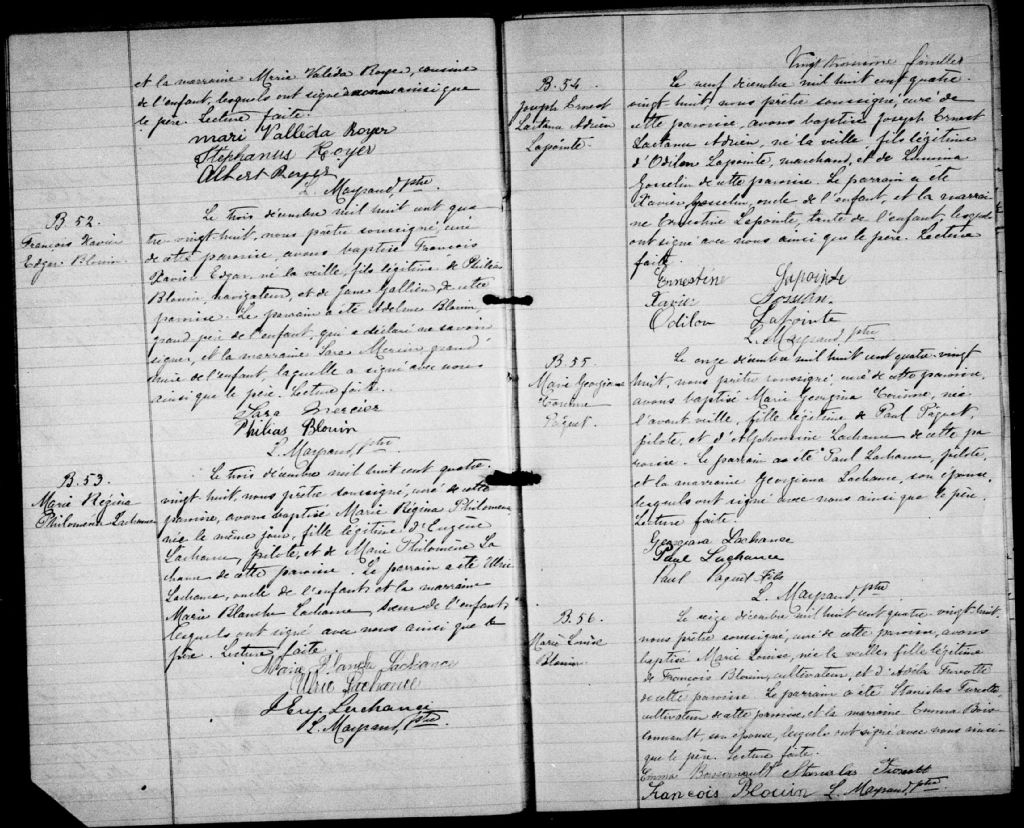 et la marraine Marie Valida Royer, cousine
de l'enfant, lesquels ont signé avec nous ainsi que
le père. Lecture faite.
mari Vallida Royer
Stephanus Royer
Albert Royer
L. Maynard, ptre
B. 52.
François Xavier
Edgar Blouin
Le trois décembre mil huit cent qua-
tre vingt huit, nous prêtre soussigné, curé
de cette paroisse, avons baptisé François
Xavier Edgar, né la veille, fils légitime de Philéas
Blouin, navigateur, et de Jane Gallien, de cette
paroisse. Le parrain a été Adelme Blouin,
grand père de l'enfant, qui a déclaré ne savoir
signer, et la marraine Sara Mercier, grand
mère de l'enfant, laquelle a signé avec nous
ainsi que le père. Lecture faite.
Sara Mercier
Philias Blouin
L. Maynard, ptre
B. 53.
Marie Régina
Philomène Lachance
Le trois décembre mil huit cent quatre-
vingt huit, nous prêtre soussigné, curé de cette
paroisse, avons baptisé Marie Régina Philomène
née le même jour, fille légitime d'Eugène
Lachance, pilote, et de Marie Philomène La
chance de cette paroisse. Le parrain a été Ulric
Lachance, oncle de l'enfant, et la marraine
Marie Blanche Lachance, soeur de l'enfant,
lesquels ont signé avec nous ainsi que le
père. Lecture faite.
Maria Blanda Lachance
Ulric Lachance
J Eug. Lachance
L. Maynard, ptre.
Vingt troisième feuillet
B. 54.
Joseph Ernest
Lactance Adrien
Lapointe.
Le neuf décembre mil huit cent quatre-
vingt huit, nous prêtre soussigné, curé de
cette paroisse, avons baptisé Joseph Ernest
Lactance Adrien, né la veille, fils légitime
d'Odilon Lapointe, marchand, et de
Gosselin de cette paroisse. Le parrain a été
Xavier Gosselin, oncle de l'enfant, et la marrai-
ne Ernestine Lapointe, tante de l'enfant, lesquels
ont signé avec nous ainsi que le père. Lecture
faite.
Ernestine Lapointe
Xavier
Odilon Lapointe
L. Maynard, ptre
B. 55
Marie Georgiana
Corinne
Paquet.
Le onze décembre mil huit cent quatre-vingt
huit, nous prêtre soussigné, curé de cette paroisse,
avons baptisé Marie Georgina Corinne, née
l'avant veille, fille légitime de Paul Paquet,
pilote, et d'Alphonsine Lachance de cette pa
roisse. Le parrain a été Paul Lachance, pilote,
et la marraine Georgiana Lachance, son épouse,
lesquels ont signé avec nous ainsi que le père.
Lecture faite.
Georgiana Lachance
Paul Lachance
Paul Paquet Fils
L. Maynard, ptre
B. 56.
Marie Louise
Blouin
Le seize décembre mil huit cent quatre-vingt huit,
nous prêtre soussigné, curé de cette paroisse, avons
baptisé Marie Louise, née la veille, fille légitime
de François Blouin, cultivateur, et d' Turcotte
de cette paroisse. Le parrain a été Stanislas Turcotte
cultivateur de cette paroisse, et la marraine Emma Bois-
sonnault, son épouse, lesquels ont signé avec nous ainsi
que le père. Lecture faite.
Emma Boissonnault Stanislas Turcott
François Blouin L. Maynard, ptre